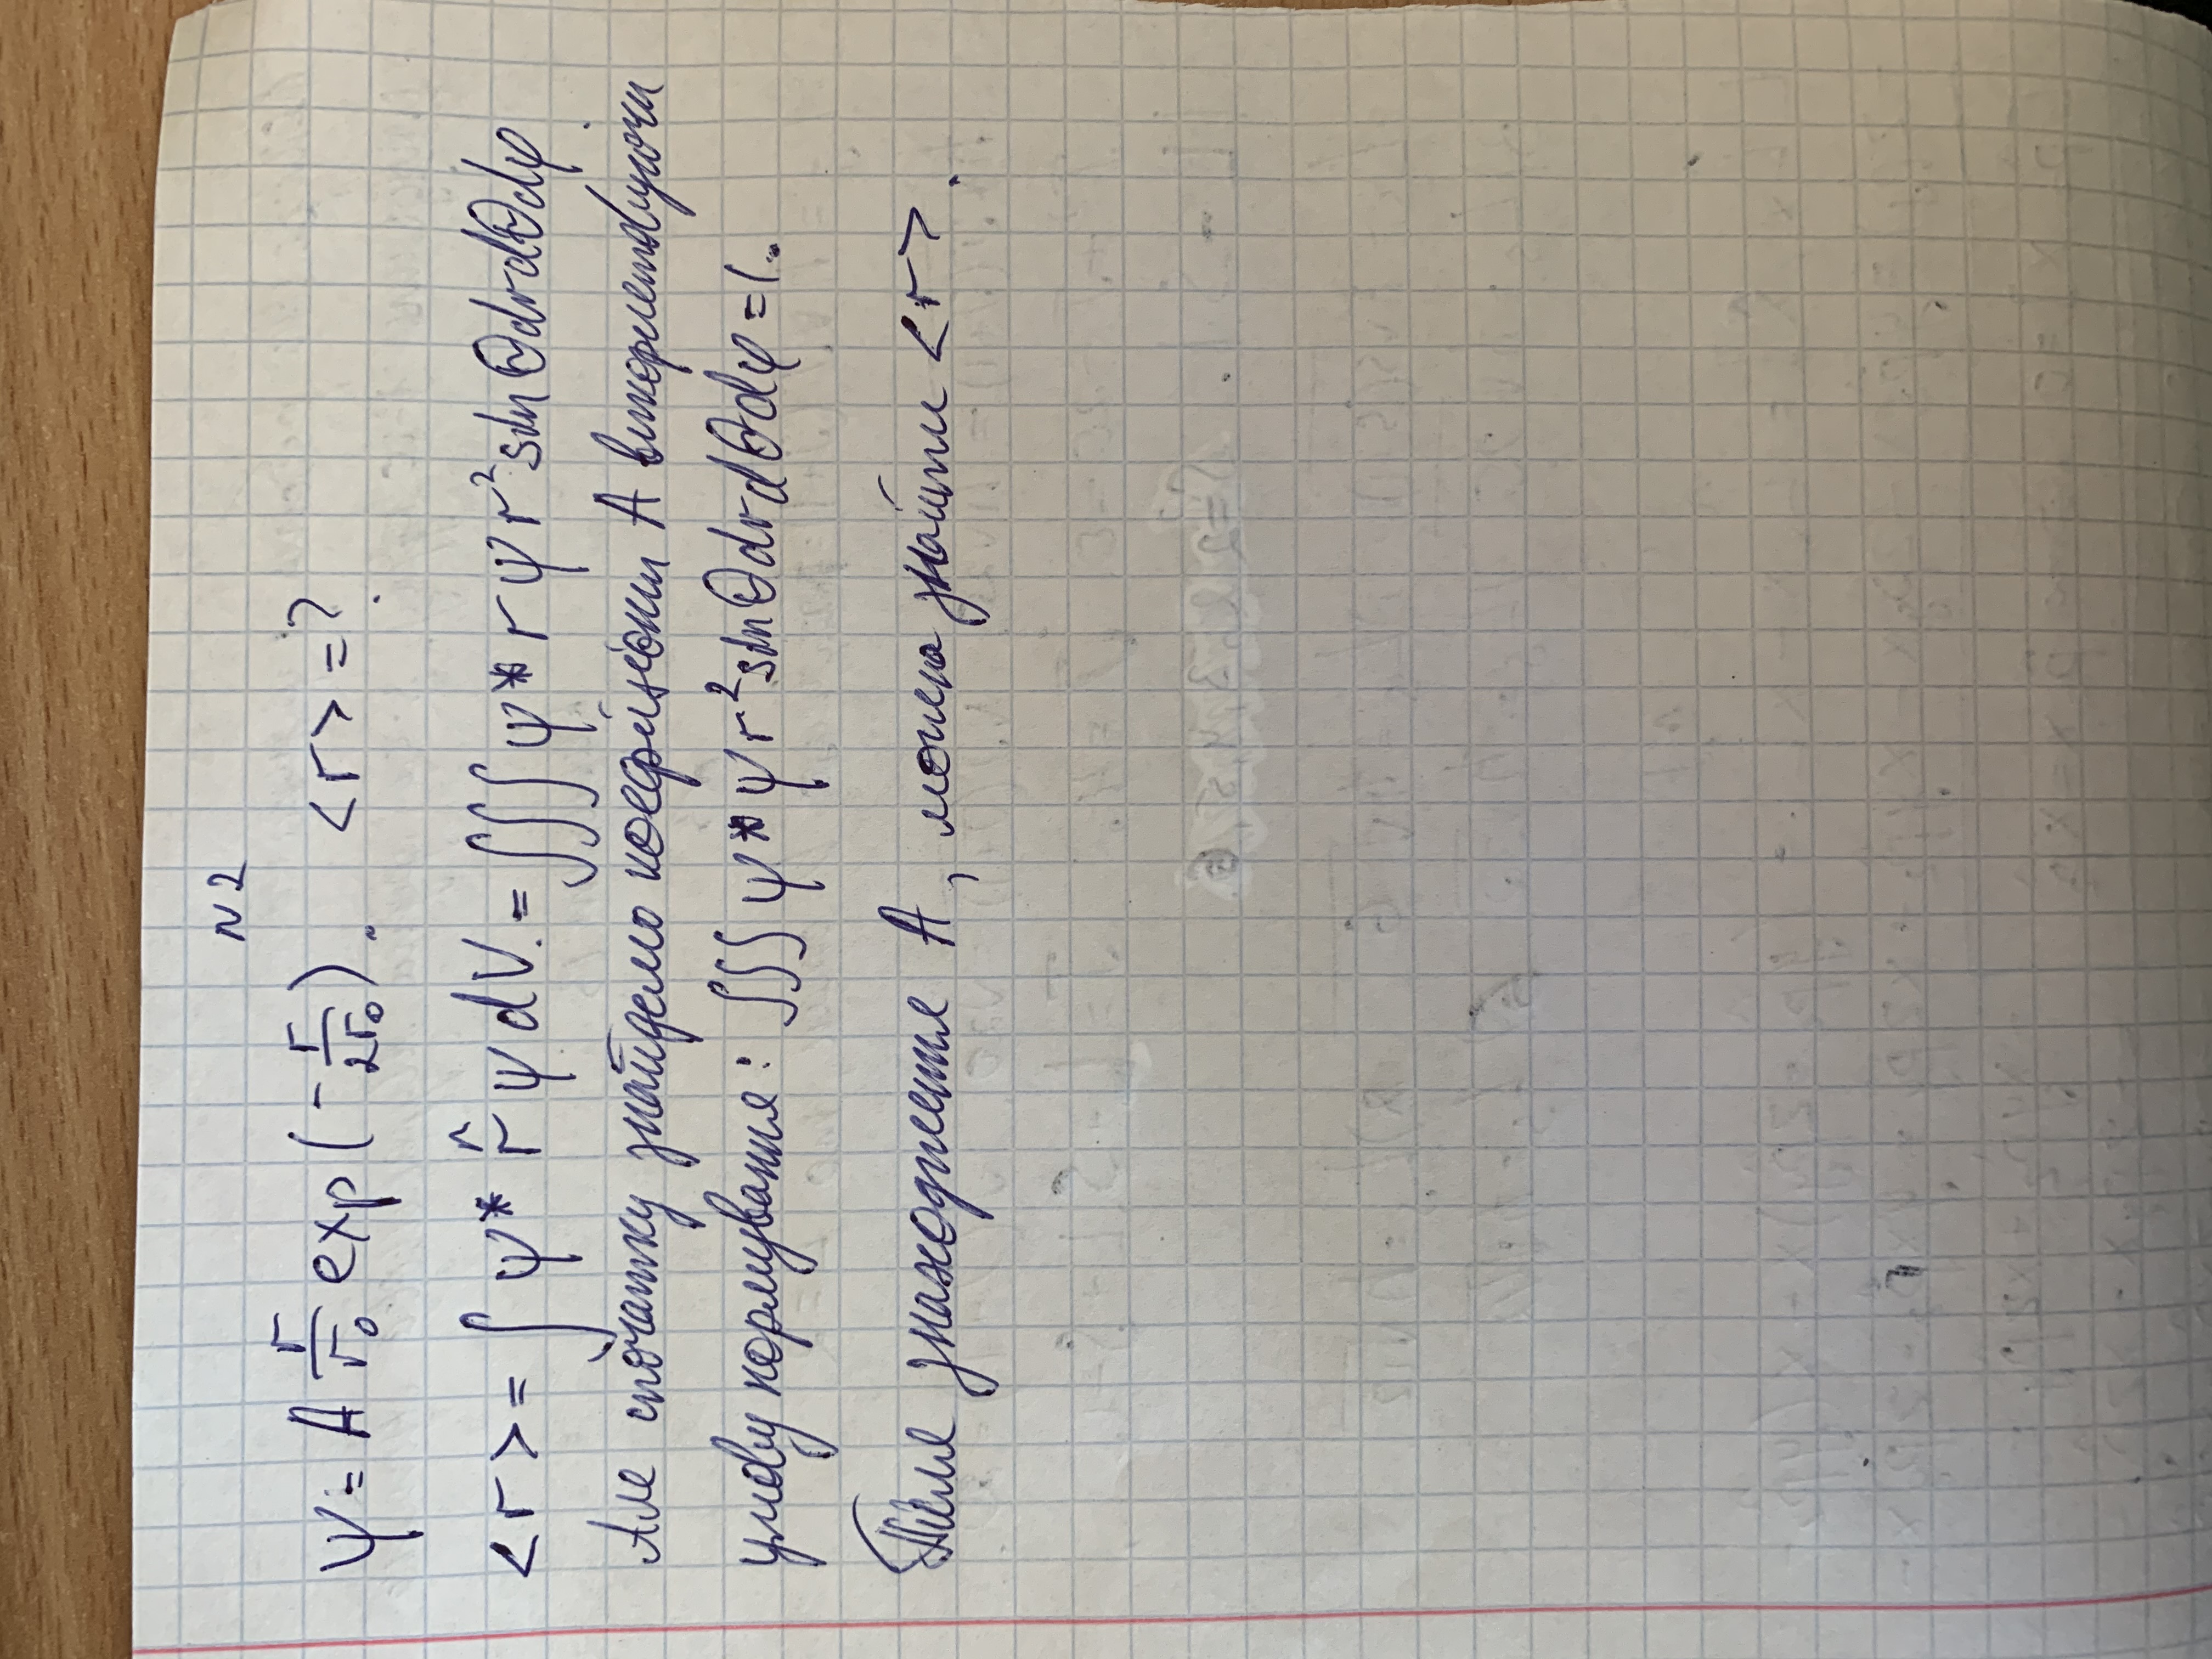 N2
ψ = A r/r₀ exp(-r/2r₀). <r> = ?
<r> = ∫ ψ* r̂ ψ dV. = ∫∫∫ ψ* r ψ r² sin θ dr dθ dφ
Але спочатку знайдемо коефіцієнт A використовуючи
умову нормування: ∫∫∫ ψ* ψ r² sin θ dr dθ dφ = 1.
Після знаходження A, можна знайти <r>.